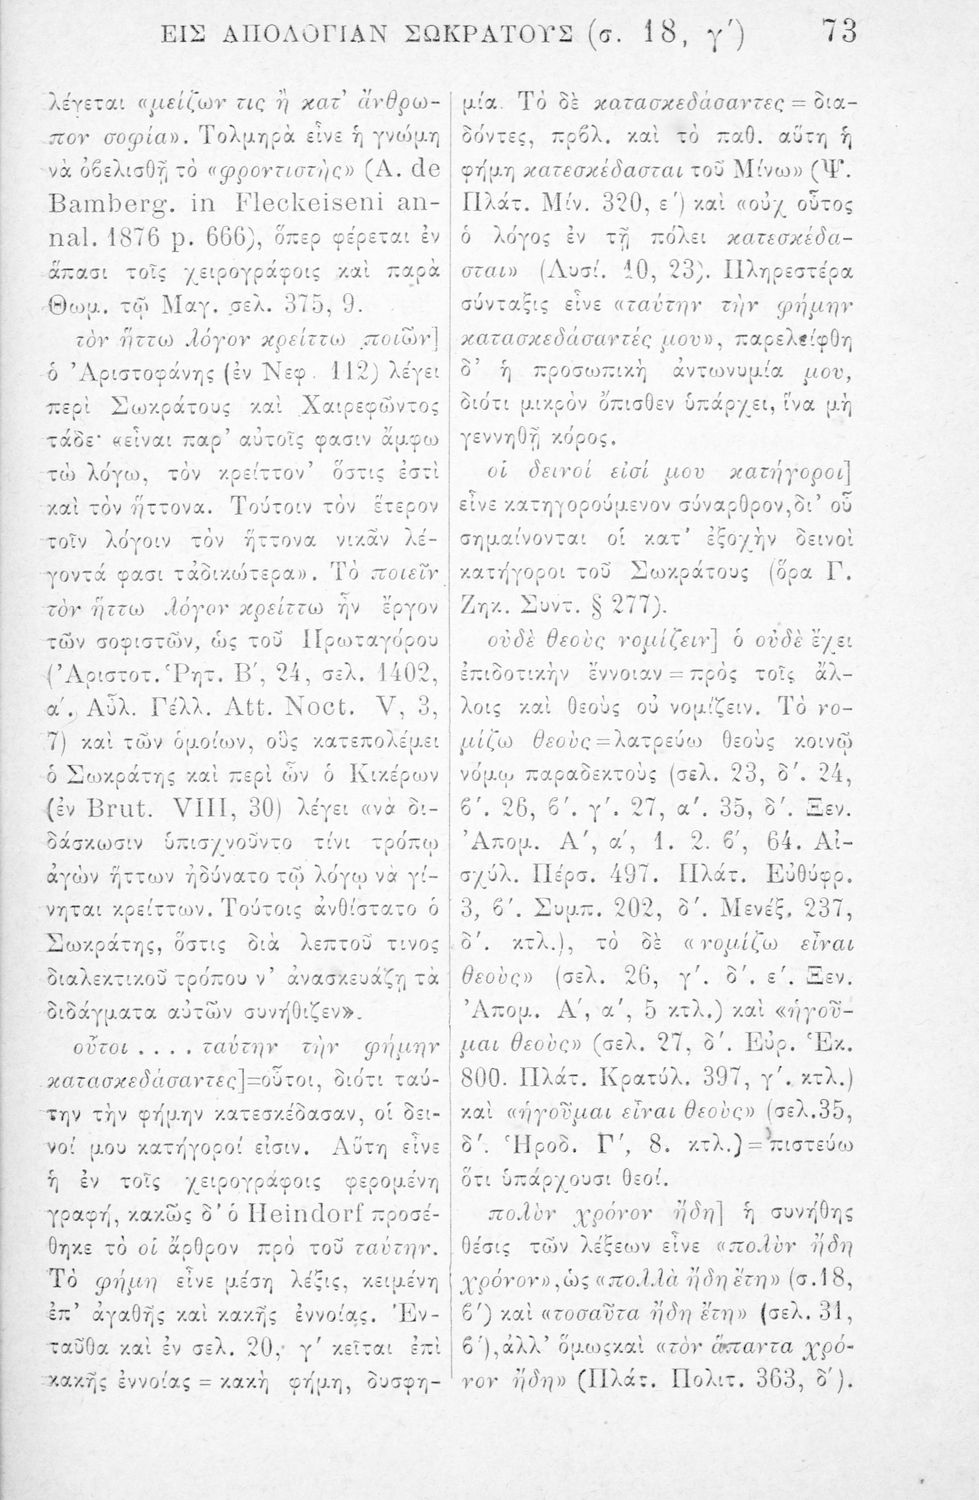 ΕΙΣ ΑΠΟΛΟΓΙΑΝ ΣΩΚΡΑΤΟΥΣ (σ. 18, γ′) 73
λέγεται «μείζων τις ἢ κατ’ ἄνθρω-
πον σοφία». Τολμηρὰ εἶνε ἡ γνώμη
νὰ ὀβελισθῇ τὸ «φροντιστὴς» (A. de
Bamberg. in Fleckeiseni an-
nal. 1876 p. 666), ὅπερ φέρεται ἐν
ἅπασι τοῖς χειρογράφοις καὶ παρὰ
Θωμ. τῷ Μαγ. σελ. 375, 9.
τὸν ἥττω λόγον κρείττω ποιῶν]
ὁ Ἀριστοφάνης (ἐν Νεφ. 112) λέγει
περὶ Σωκράτους καὶ Χαιρεφῶντος
τάδε· «εἶναι παρ’ αὐτοῖς φασιν ἄμφω
τὼ λόγω, τὸν κρείττον’ ὅστις ἐστὶ
καὶ τὸν ἥττονα. Τούτοιν τὸν ἕτερον
τοῖν λόγοιν τὸν ἥττονα νικᾶν λέ-
γοντά φασι τἀδικώτερα». Τὸ ποιεῖν
τὸν ἥττω λόγον κρείττω ἦν ἔργον
τῶν σοφιστῶν, ὡς τοῦ Πρωταγόρου
(Ἀριστοτ. Ῥητ. Β′, 24, σελ. 1402,
α′. Αὖλ. Γέλλ. Att. Noct. V, 3,
7) καὶ τῶν ὁμοίων, οὓς κατεπολέμει
ὁ Σωκράτης καὶ περὶ ὧν ὁ Κικέρων
(ἐν Brut. VIII, 30) λέγει «νὰ δι-
δάσκωσιν ὑπισχνοῦντο τίνι τρόπῳ
ἀγὼν ἥττων ἠδύνατο τῷ λόγῳ νὰ γί-
νηται κρείττων. Τούτοις ἀνθίστατο ὁ
Σωκράτης, ὅστις διὰ λεπτοῦ τινος
διαλεκτικοῦ τρόπου ν’ ἀνασκευάζῃ τὰ
διδάγματα αὐτῶν συνήθιζεν».
οὗτοι .... ταύτην τὴν φήμην
κατασκεδάσαντες]=οὗτοι, διότι ταύ-
την τὴν φήμην κατεσκέδασαν, οἱ δει-
νοί μου κατήγοροί εἰσιν. Αὕτη εἶνε
ἡ ἐν τοῖς χειρογράφοις φερομένη
γραφή, κακῶς δ’ ὁ Heindorf προσέ-
θηκε τὸ οἱ ἄρθρον πρὸ τοῦ ταύτην.
Τὸ φήμη εἶνε μέση λέξις, κειμένη
ἐπ’ ἀγαθῆς καὶ κακῆς ἐννοίας. Ἐν-
ταῦθα καὶ ἐν σελ. 20, γ′ κεῖται ἐπὶ
κακῆς ἐννοίας = κακὴ φήμη, δυσφη-
μία. Τὸ δὲ κατασκεδάσαντες = δια-
δόντες, πρβλ. καὶ τὸ παθ. αὕτη ἡ
φήμη κατεσκέδασται τοῦ Μίνω» (Ψ.
Πλάτ. Μίν. 320, ε′) καὶ «οὐχ οὗτος
ὁ λόγος ἐν τῇ πόλει κατεσκέδα-
σται» (Λυσί. 10, 23). Πληρεστέρα
σύνταξις εἶνε «ταύτην τὴν φήμην
κατασκεδάσαντές μου», παρελείφθη
δ’ ἡ προσωπικὴ ἀντωνυμία μου,
διότι μικρὸν ὄπισθεν ὑπάρχει, ἵνα μὴ
γεννηθῇ κόρος.
οἱ δεινοί εἰσί μου κατήγοροι]
εἶνε κατηγορούμενον σύναρθρον, δι’ οὗ
σημαίνονται οἱ κατ’ ἐξοχὴν δεινοὶ
κατήγοροι τοῦ Σωκράτους (ὅρα Γ.
Ζηκ. Συντ. § 277).
οὐδὲ θεοὺς νομίζειν] ὁ οὐδὲ ἔχει
ἐπιδοτικὴν ἔννοιαν = πρὸς τοῖς ἄλ-
λοις καὶ θεοὺς οὐ νομίζειν. Τὸ νο-
μίζω θεοὺς=λατρεύω θεοὺς κοινῷ
νόμῳ παραδεκτοὺς (σελ. 23, δ′. 24,
β′. 26, β′. γ′. 27, α′. 35, δ′. Ξεν.
Ἀπομ. Α′, α′, 1. 2. β′, 64. Αἰ-
σχύλ. Πέρσ. 497. Πλάτ. Εὐθύφρ.
3, β′. Συμπ. 202, δ′. Μενέξ. 237,
δ′. κτλ.), τὸ δὲ «νομίζω εἶναι
θεοὺς» (σελ. 26, γ′. δ′. ε′. Ξεν.
Ἀπομ. Α′, α′, 5 κτλ.) καὶ «ἡγοῦ-
μαι θεοὺς» (σελ. 27, δ′. Εὐρ. Ἑκ.
800. Πλάτ. Κρατύλ. 397, γ′. κτλ.)
καὶ «ἡγοῦμαι εἶναι θεοὺς» (σελ. 35,
δ′. Ἡροδ. Γ′, 8. κτλ.) = πιστεύω
ὅτι ὑπάρχουσι θεοί.
πολὺν χρόνον ἤδη] ἡ συνήθης
θέσις τῶν λέξεων εἶνε «πολὺν ἤδη
χρόνον», ὡς «πολλὰ ἤδη ἔτη» (σ. 18,
β′) καὶ «τοσαῦτα ἤδη ἔτη» (σελ. 31,
β′), ἀλλ’ ὅμως καὶ «τὸν ἅπαντα χρό-
νον ἤδη» (Πλάτ. Πολιτ. 363, δ′).